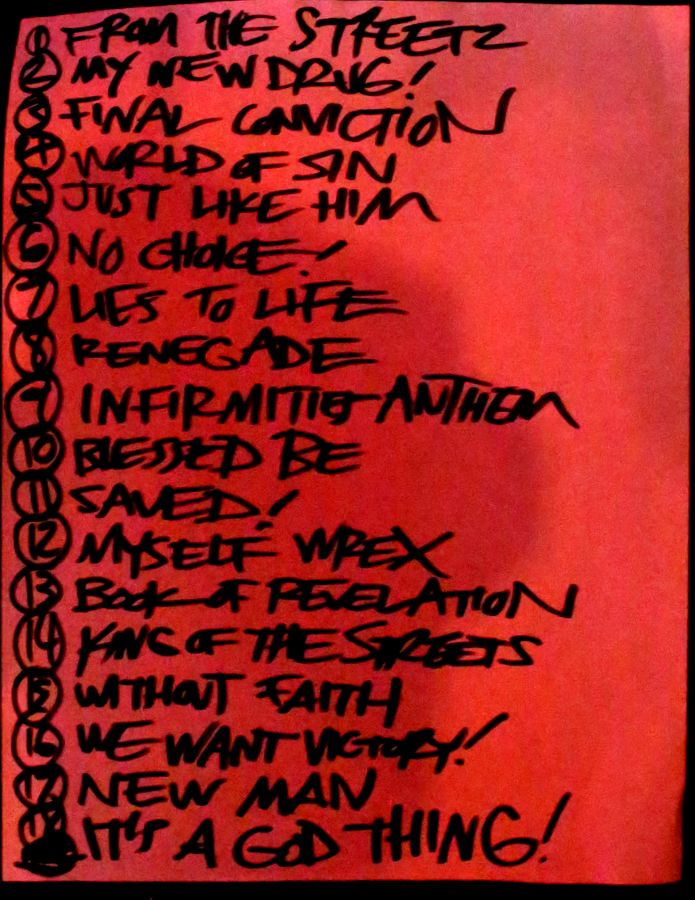 1 FROM THE STREETZ
2 MY NEW DRUG!
3 FINAL CONVICTION
4 WORLD OF SIN
5 JUST LIKE HIM
6 NO CHOICE!
7 LIES TO LIFE
8 RENEGADE
9 INFIRMITIES ANTHEM
10 BLESSED BE
11 SAVED!
12 MYSELF WREX
13 BOOK OF REVELATION
14 KING OF THE STREETS
15 WITHOUT FAITH
16 WE WANT VICTORY!
17 NEW MAN
18 IT'S A GOD THING!